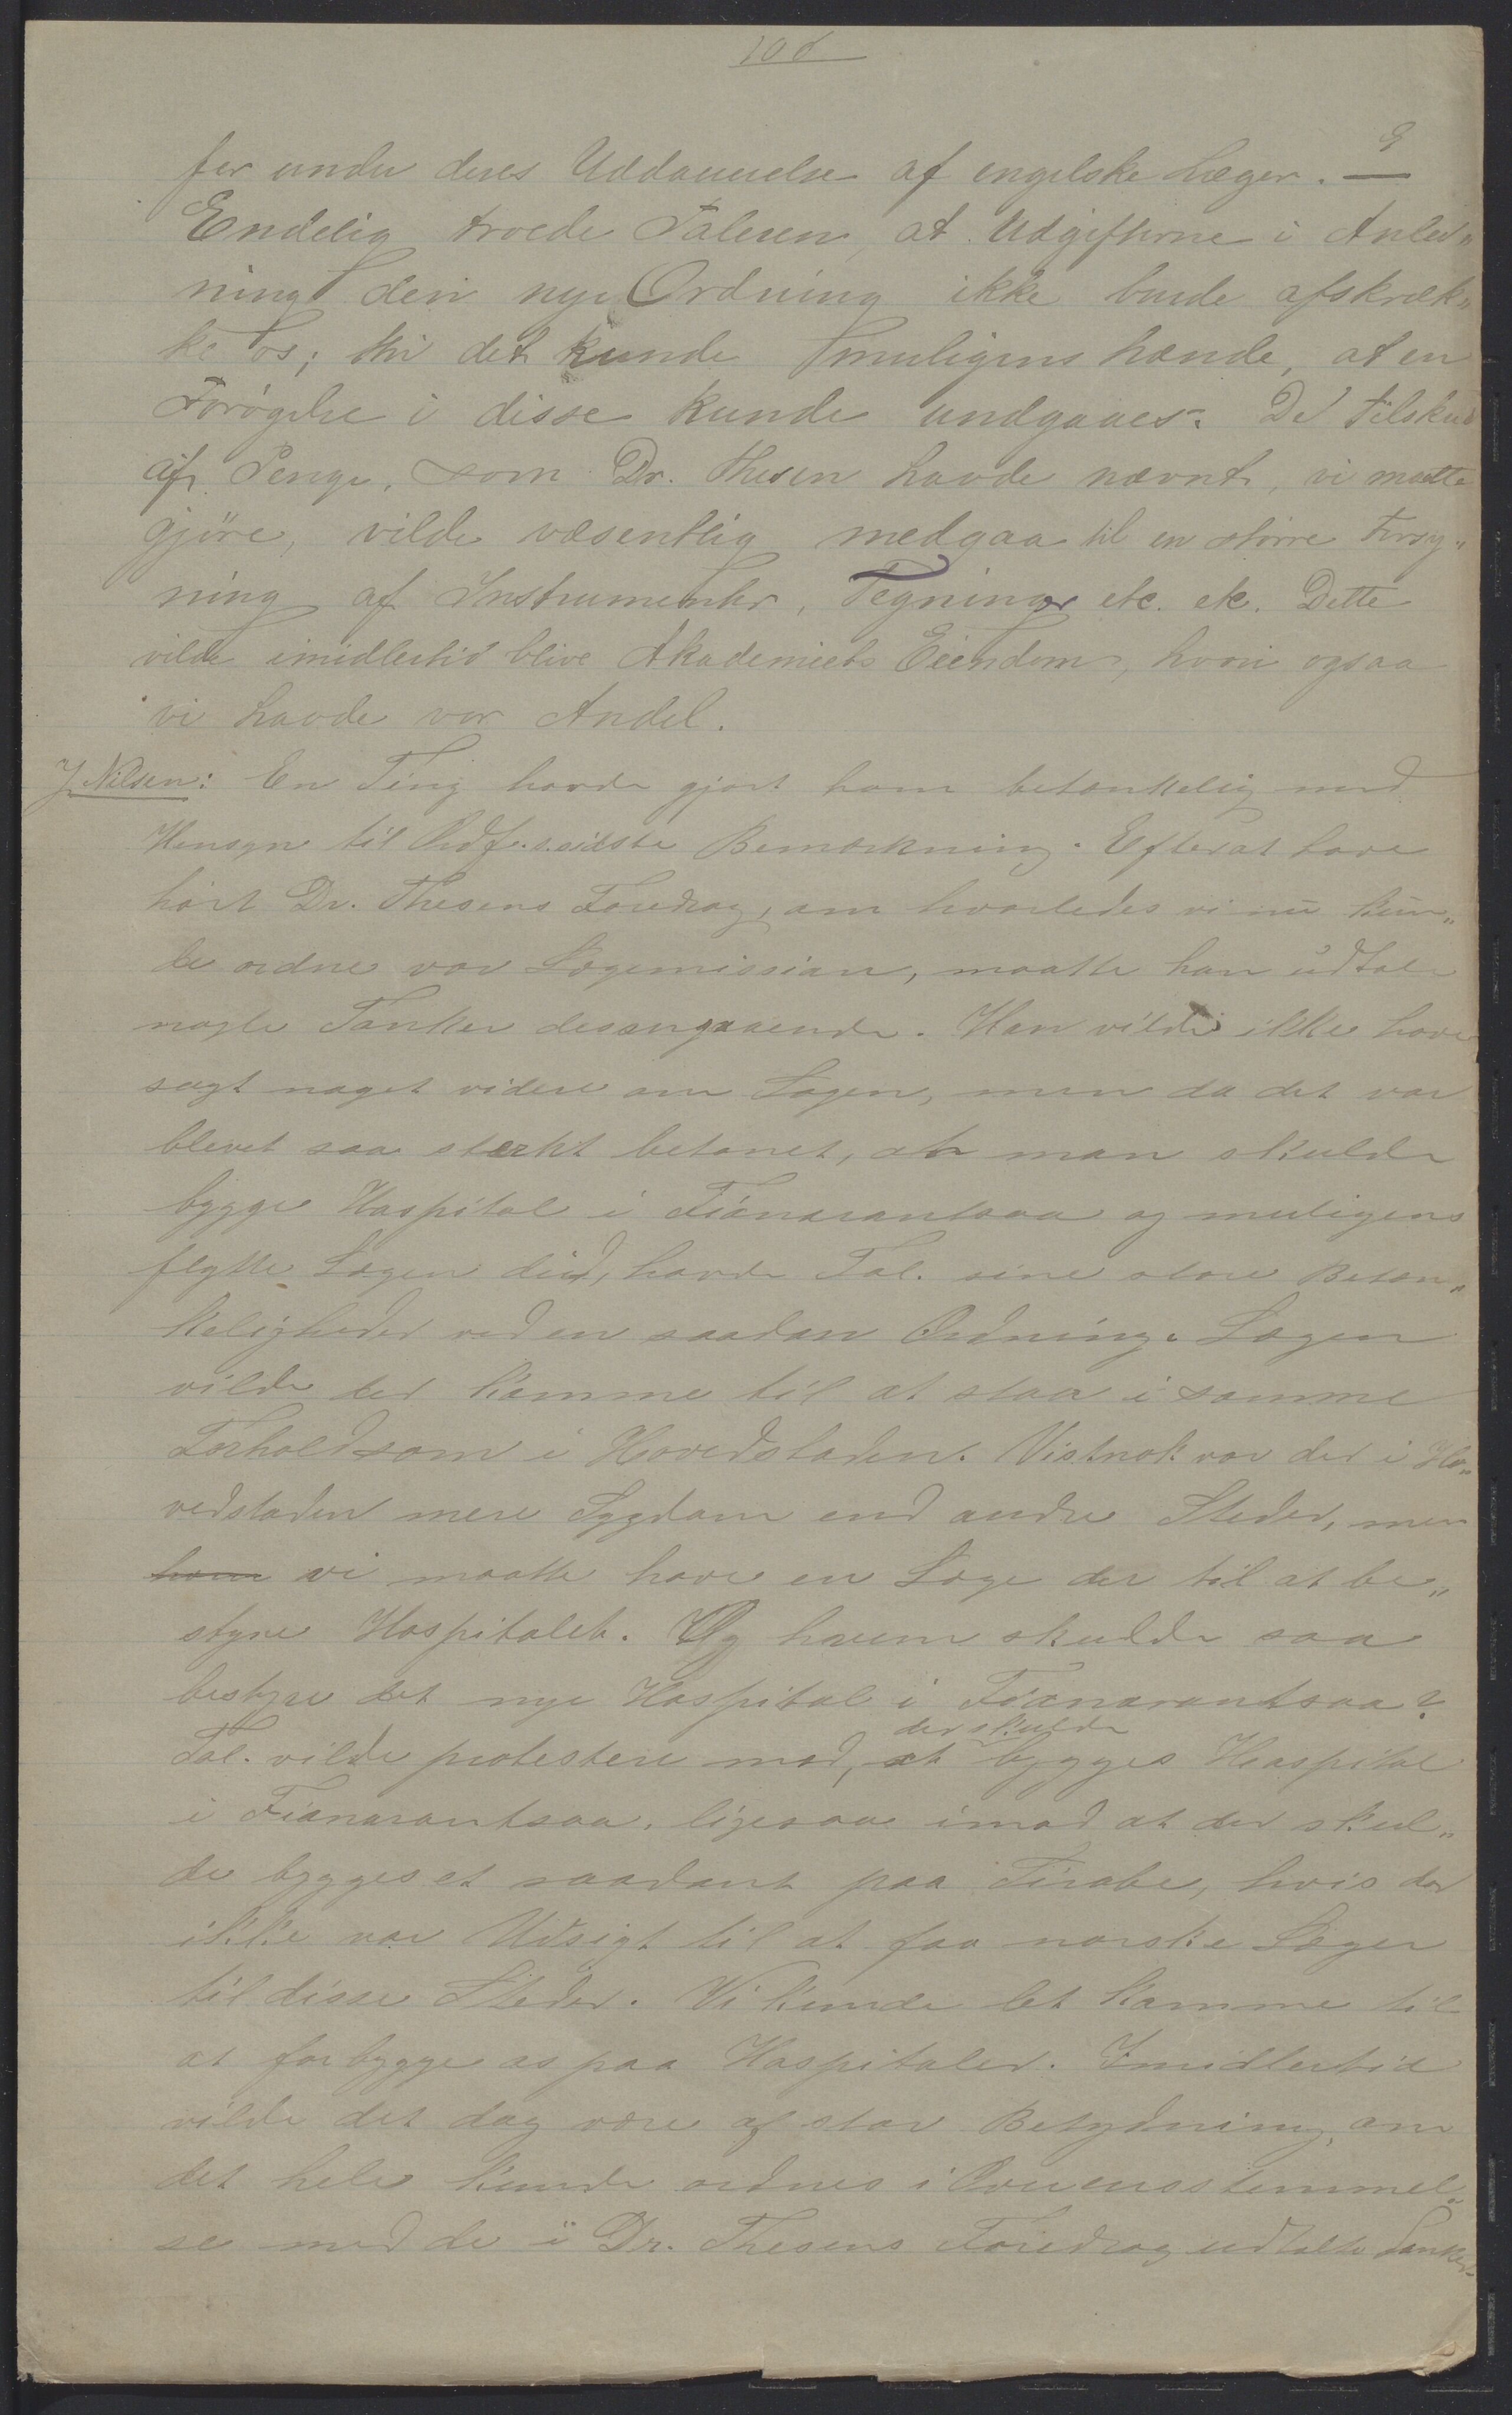 106
9
fer under deres Uddannelse af engelske Læger. —
Endelig troede Taleren, at Udgifterne i Anled„
ning den nye Ordning ikke burde afskræk„
ke os; thi det kunde muligens hænde, at en
Forøgelse i disse kunde undgaaes. Det Tilskud
af Penge, som Dr. Thesen havde nævnt, vi maatte
gjöre, vilde væsentlig medgaa til en större Forsy„
ning af Instrumenter, Tegninger etc. etc. Dette
vilde imidlertid blive Akademiets Eiendom, hvori ogsaa
vi havde vor Andel.
J. Nilsen: En Ting havde gjort ham betænkelig med
Hensyn til Ordf.s sidste Bemærkning. Efterat have
hört Dr. Thesens Foredrag, om hvorledes vi nu kun„
de ordne vor Lægemission, maatte han udtale
nogle Tanker desangaaende. Han vilde ikke have
sagt noget videre om Sagen, men da det var
blevet saa stærkt betonet, at man skulde
bygge Hospital i Fianarantsoa og muligens
flytte Lægen did, havde Tal. sine store Betæn„
keligheder ved en saadan Ordning. Lægen
vilde der komme til at staa i samme
Forhold som i Hovedstaden. Vistnok var der i Ho„
vedstaden mere Sygdom end andre Steder, men
vi maatte have en Læge der til at be„
styre Hospitalet. Og hvem skulde saa
bestyre det nye Hospital i Fianarantsoa?
der skulde
Tal. vilde protestere mod, at bygges Hospital
i Fianarantsoa, ligesaa imod at der skul„
de bygges et saadant paa Sirabe, hvis der
ikke var Udsigt til at faa norske Læger
til disse Steder. Vi kunde let komme til
at forbygge os paa Hospitaler. Imidlertid
vilde det dog være af stor Betydning, om
det hele kunde ordnes i Overensstemmel„
se med de i Dr. Thesens Foredrag udtalte Tanker